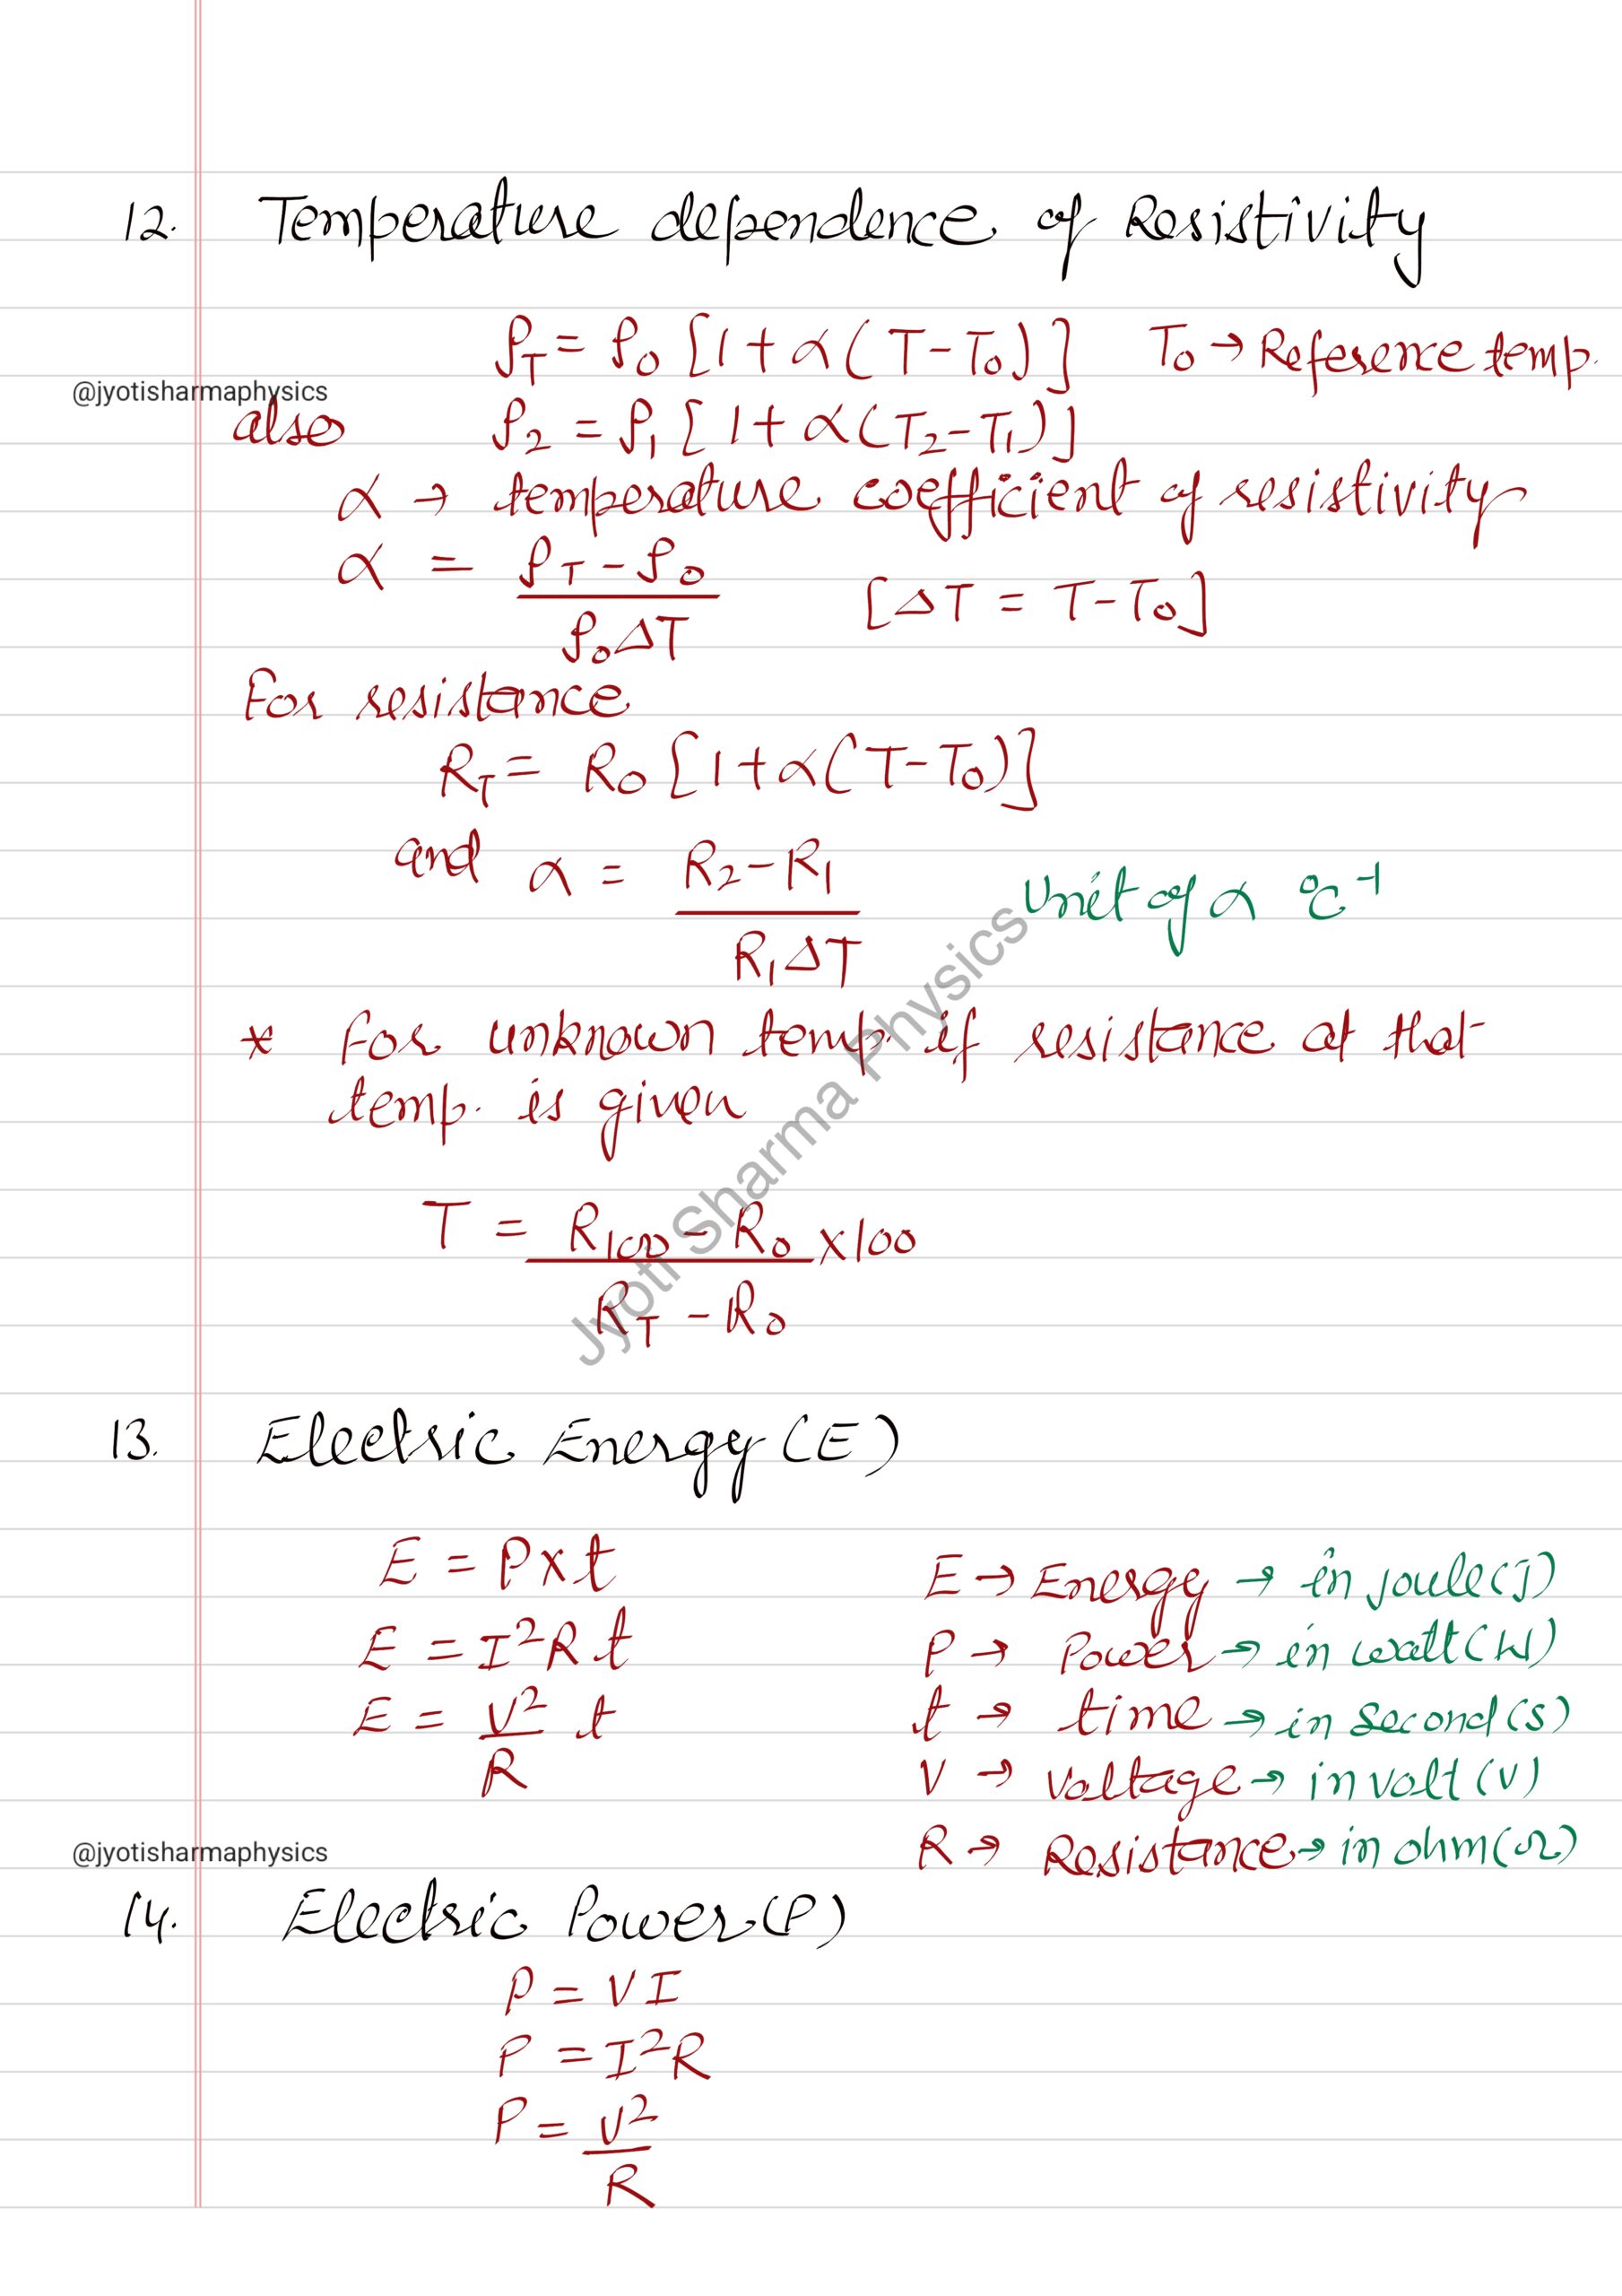 12. Temperature dependence of Resistivity
ρT = ρ0 [1+α(T-T0)] T0 → Reference temp.
@jyotisharmaphysics
also ρ2 = ρ1 [1+α(T2-T1)]
α → temperature coefficient of resistivity
α = ρT - ρ0
ρ0ΔT [ΔT = T-T0]
For resistance
RT = R0 [1+α(T-T0)]
and α = R2-R1
R1ΔT
Unit of α °C⁻¹
* For unknown temp. if resistance at that
temp. is given
T = R100 - R0 x100
RT - R0
Jyoti Sharma Physics
13. Electric Energy (E)
E = Pxt E → Energy → in joule(j)
E = I²Rt P → Power → in watt(W)
E = V² t t → time → in second(s)
R V → Voltage → in volt(v)
@jyotisharmaphysics R → Resistance → in ohm(Ω)
14. Electric Power(P)
P = VI
P = I²R
P = V²
R